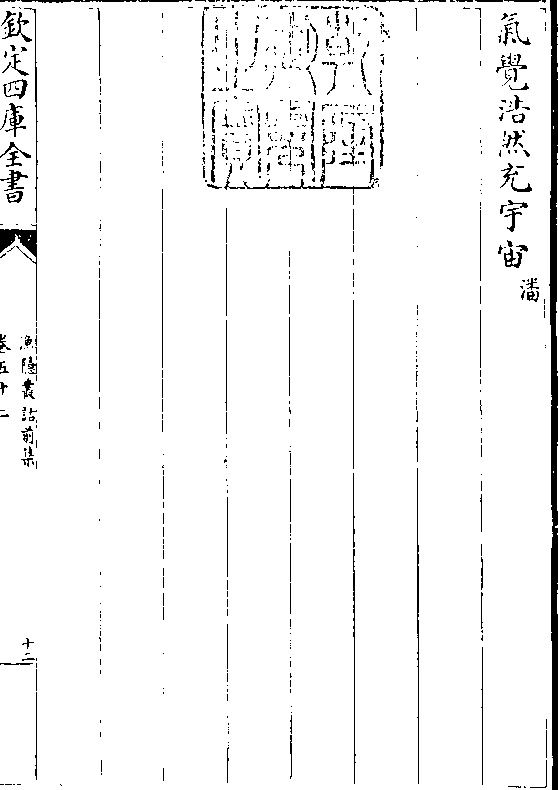 氣覺浩然充宇宙
潘
欽定四庫全書
漁隱叢話前集
卷五十二
十二